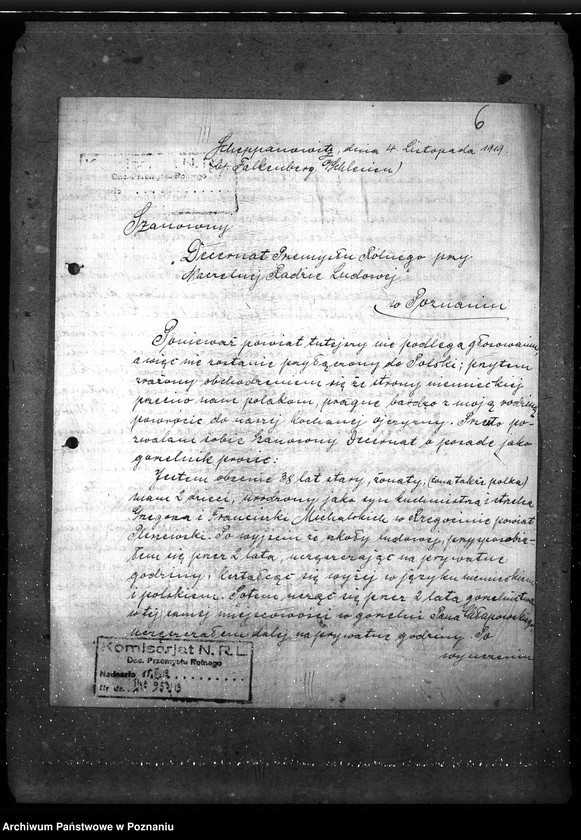 6
Scheppanowitz, dnia 4. Listopada 1919.
Falkenberg Schlesien)
Szanowny
Decernat Przemysłu Rólnego przy
Naczelnej Radzie Ludowej
w Poznaniu
Ponieważ powiat tutejszy nie podlega głosowaniu,
a więc nie zostanie przyłączony do Polski; przytem
zrażony obchodzeniem się ze strony niemieckiej
przeciw nam polakom, pragnę bardzo z moją rodziną
powrócić do naszej kochanej ojczyzny. Przeto po-
zwalam sobie Szanowny Decernat o poradę jako
gorzelnik prosić:
Jestem obecnie 38 lat stary, żonaty, (żona także polka)
mam 2 dzieci, urodzony jako syn kuchmistrza i strzelca
Grzegorza i Franciszki Michalskich w powiat
Pleszewski. Po wyjściu ze szkoły ludowej, przysposobia-
łem się przez 2 lata, uczęszczając na prywatne
godziny, kształcąc się wyżej w języku niemieckim
i polskiem. Potem, ucząc się przez 2 lata gorzelnictwa
w tej samej miejscowości w gorzelni Pana Chłapowskiego
uczęszczałem dalej na prywatne godziny. Po
wyuczeniu
Komisarjat N. R. L.
Dec. Przemysłu Rolnego
Nadeszło
Nr. dz.
Archiwum Państwowe w Poznaniu